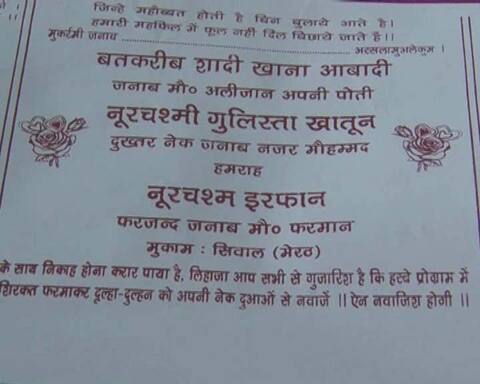 जिन्हे महोब्बत होती है बिन बुलाये आते है।
हमारी महफिल में फूल नहीं दिल बिछाये जाते है।।
मुकर्रमी जनाब ........................ अस्सलामुअलेकुम।
बतकरीब शादी खाना आबादी
जनाब मौ० अलीजान अपनी पोती
नूरचश्मी गुलिस्ता खातून
दुख्तर नेक जनाब नजर मौहम्मद
हमराह
नूरचश्म इरफान
फरजन्द जनाब मौ० फरमान
मुकाम : सिवाल (मेरठ)
के साथ निकाह होना करार पाया है, लिहाजा आप सभी से गुजारिश है कि हस्बे प्रोग्राम में
शिरकत फरमाकर दूल्हा-दुल्हन को अपनी नेक दुआओं से नवाजें ।। ऐन नवाजिश होगी ।।